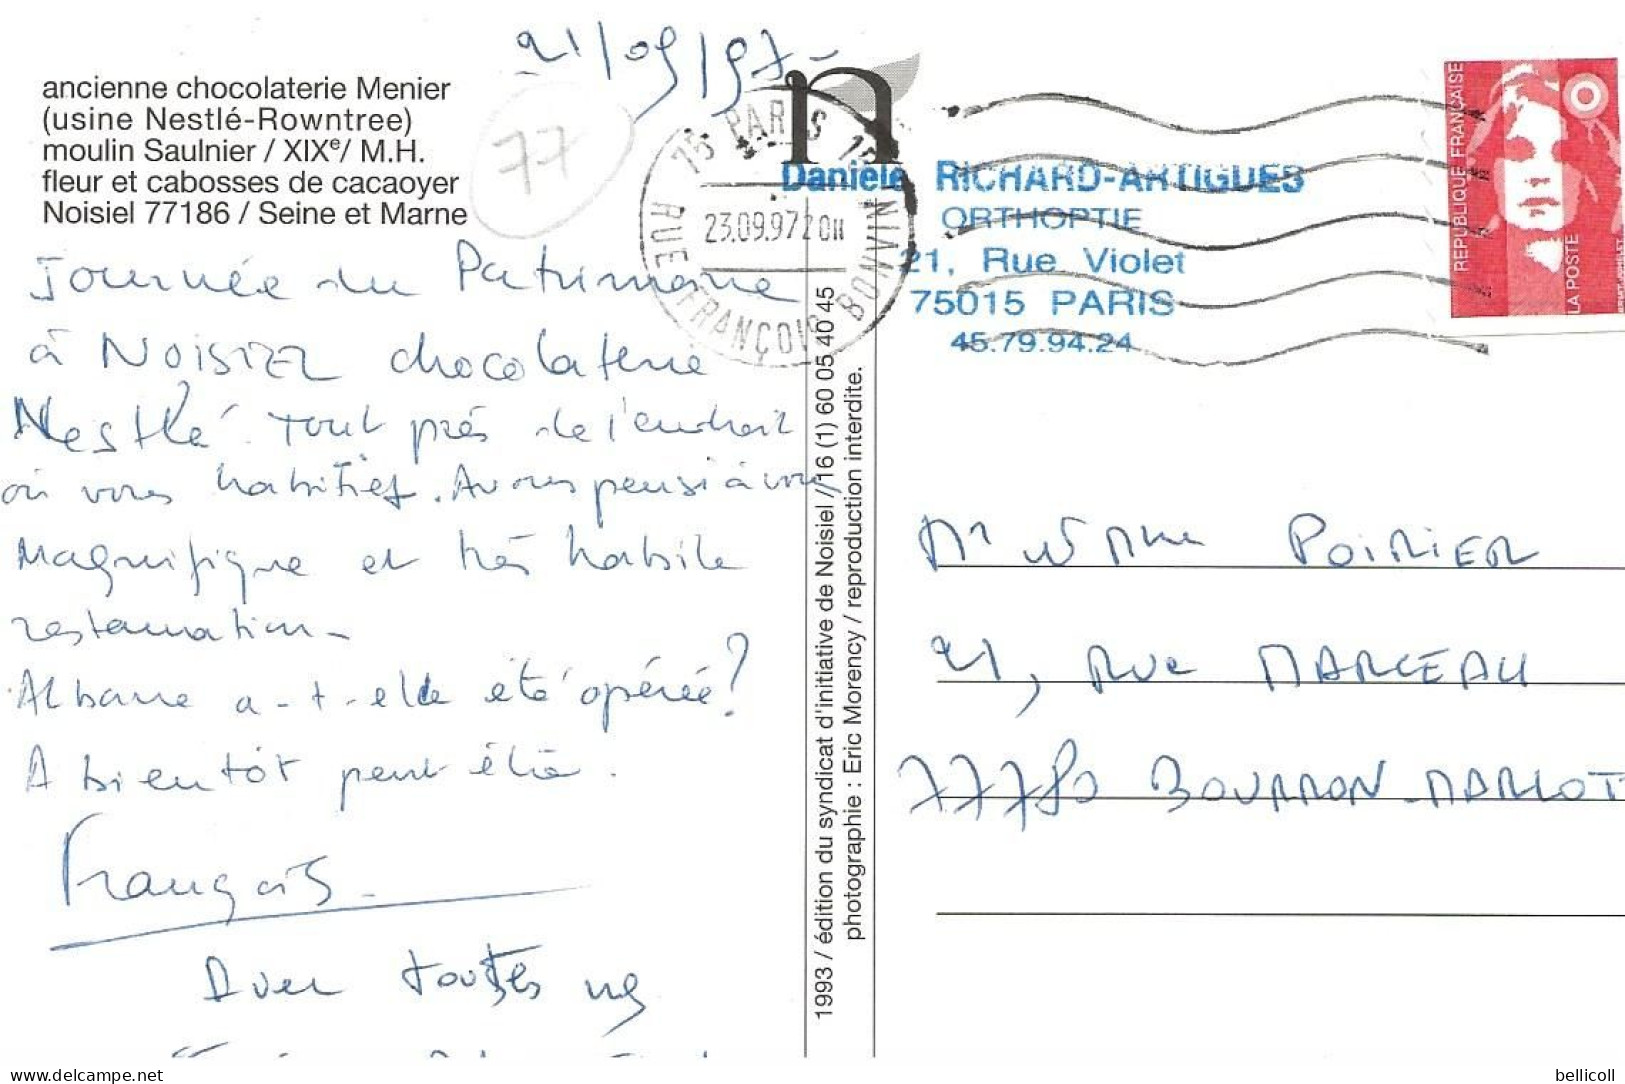 21/09/97-
ancienne chocolaterie Menier
(usine Nestlé-Rowntree)
moulin Saulnier / XIXe/ M.H.
fleur et cabosses de cacaoyer
Noisiel 77186 / Seine et Marne
77
Journée du Patrimoine
à NOISIEL chocolaterie
Nestlé. Tout près de l'endroit
où vous habitiez. Avons pensé à vous
Magnifique et très habile
restauration-
Albane a-t-elle été opérée?
A bientôt peut être.
François-
Avec toutes
1993 / édition du syndicat d'initiative de Noisiel / 16 (1) 60 05 40 45
photographe : Eric Morency / reproduction interdite.
n
75 PARIS 15
23.09.97 20H
RUE FRANÇOIS BONVIN
Danièle RICHARD-ARTIGUES
ORTHOPTIE
21, Rue Violet
75015 PARIS
45.79.94.24
REPUBLIQUE FRANÇAISE
LA POSTE
Mr et Mme POIRIER
21, RUE MARCEAU
77780 BOURRON-MARLOT
delcampe.net
bellicoll